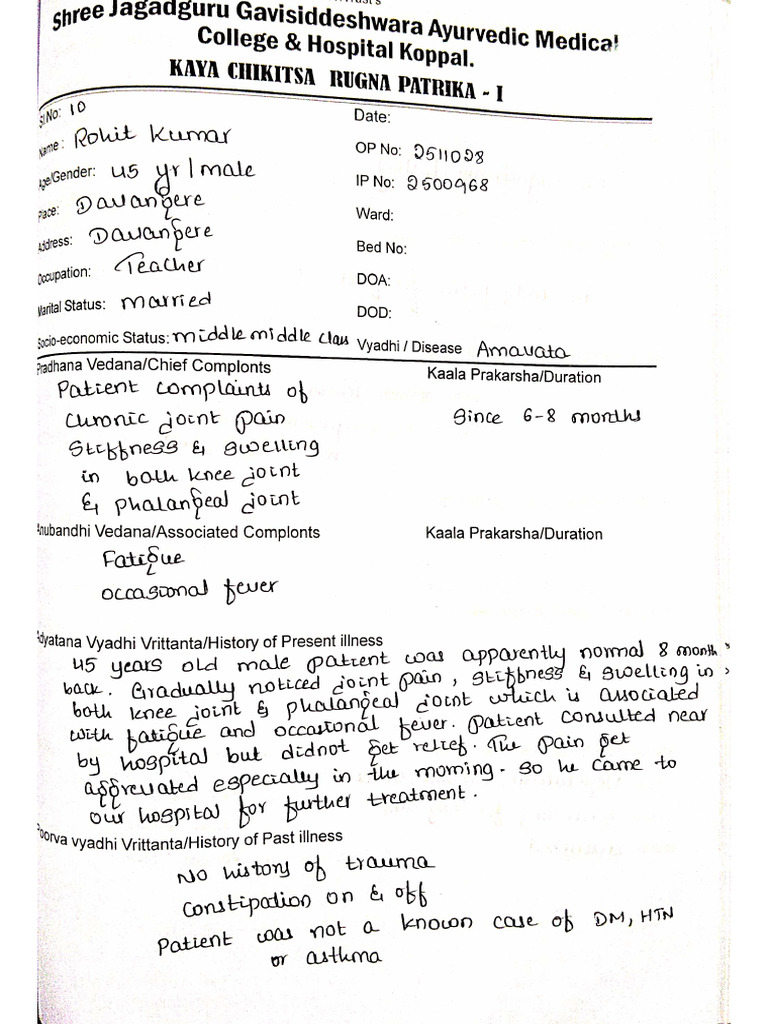 Trust's
Shree Jagadguru Gavisiddeshwara Ayurvedic Medical
College & Hospital Koppal.
KAYA CHIKITSA RUGNA PATRIKA - I
Sl No: 10
Date:
Name: Rohit Kumar
OP No: 2511028
Age/Gender: 45 yr/male
IP No: 2500968
Place: Davangere
Ward:
Address: Davangere
Bed No:
Occupation: Teacher
DOA:
Marital Status: married
DOD:
Socio-economic Status: middle middle class
Vyadhi / Disease Amavata
Pradhana Vedana/Chief Complonts
Kaala Prakarsha/Duration
Patient complaints of
chronic joint pain
Since 6-8 months
Stiffness & swelling
in both knee joint
& phalangeal joint
Anubandhi Vedana/Associated Complonts
Kaala Prakarsha/Duration
Fatigue
occasional fever
Adyatana Vyadhi Vrittanta/History of Present illness
45 years old male patient was apparently normal 8 months
back. Gradually noticed joint pain, stiffness & swelling in
both knee joint & phalangeal joint which is associated
with fatigue and occasional fever. Patient consulted near
by hospital but didnot get relief. The pain get
aggrevated especially in the morning. So he came to
our hospital for further treatment.
Poorva vyadhi Vrittanta/History of Past illness
No history of trauma
Constipation on & off
Patient was not a known case of DM, HTN
or asthma